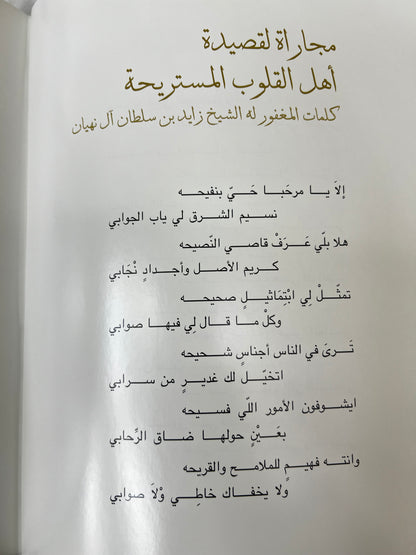 مجاراة لقصيدة
أهل القلوب المستريحة
كلمات المغفور له الشيخ زايد بن سلطان آل نهيان
إلاَ يـا مرحَبا حَيّ بنفيحـه
نسيم الشرق لي ياب الجوابي
هلا بلّي عَـرَفْ قاصـي النّصيحه
كريم الأصل وأجدادٍ نْجَابي
تمثّلْ لِي ابْتِمَاثيلٍ صحيحه
وكلْ ما قال لِي فيها صوابي
تَـرىَ في الناس أجناسٍ شحيحه
اتخيّل لك غديرٍ من سرابي
ايشوفون الأمور اللّي فسيحه
بعَيْنٍ حولها ضاق الرِّحابي
وانته فهيمٍ للملامح والقريحه
ولا يخفاك خاطِي وْلاَ صوابي